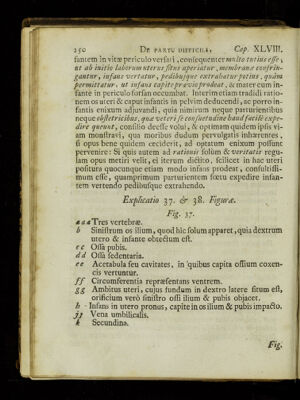 250 DE PARTU DIFFICILI, Cap. XLVIII.
fantem in vitæ periculo versari, consequenter multo tutius esse,
ut ab initio laborum uterus sitns aperiatur, membranæ confrin-
gantur, infans vertatur, pedibusque extrabatur potius, quàm
permittatur, ut infans capite prævio prodeat, & mater cum in-
fante in periculo forsan occumbat. Interim etiam tradidi ratio-
nem os uteri & caput infantis in pelvim deducendi, ac porro in-
fantis enixum adjuvandi, quia nimirum neque parturientibus
neque obstetricibus, qua veteri se consuetudine haud facilè expe-
dire queunt, consilio deesse volui, & optimam quidem ipsis vi-
am monstravi, qua moribus dudum pervulgatis inhærentes,
si opus bene quidem ceciderit, ad optatum enixum possunt
pervenire: Si quis autem ad rationis solum & veritatis regu-
lam opus metiri velit, ei iterum dicitto, scilicet in hac uteri
positura quocunque etiam modo infans prodeat, consultissi-
mum esse, quamprimum parturientem fœtu expedire infan-
tem vertendo pedibusque extrahendo.
Explicatio 37. & 38. Figuræ.
Fig. 37.
aaa Tres vertebræ.
b Sinistrum os ilium, quod hîc solum apparet, quia dextrum
utero & infante obtectum est.
cc Ossa pubis.
dd Ossa sedentaria.
ee Acetabula seu cavitates, in quibus capita ossium coxen-
cis vertuntur.
ff Circumferentia repræsentans ventrem.
gg Ambitus uteri, cujus fundum in dextro latere situm est,
orificium verò sinistro ossi ilium & pubis objacet.
h Infans in utero pronus, capite in os ilium & pubis impacto.
jj Vena umbilicalis.
k Secundina.
Fig.